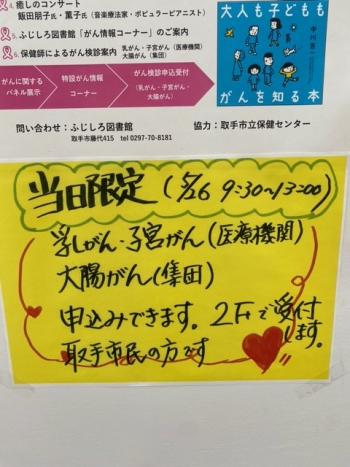 4. 癒しのコンサート
飯田朋子氏・薫子氏(音楽療法家・ポピュラーピアニスト)
5. ふじしろ図書館「がん情報コーナー」のご案内
6. 保健師によるがん検診案内 乳がん・子宮がん(医療機関)
大腸がん(集団)
がんに関する
パネル展示
特設がん情報
コーナー
がん検診申込受付
(乳がん・子宮がん・
大腸がん)
大人も子どもも
中川恵一
がんを知る本
問い合わせ:ふじしろ図書館
取手市藤代415 tel 0297-70-8181
協力:取手市立保健センター
当日限定 (5/26 9:30~13:00)
乳しがん・子宮がん(医療機関)
大腸がん(集団)
申込みできます。2Fで受付
します。
取手市民の方です